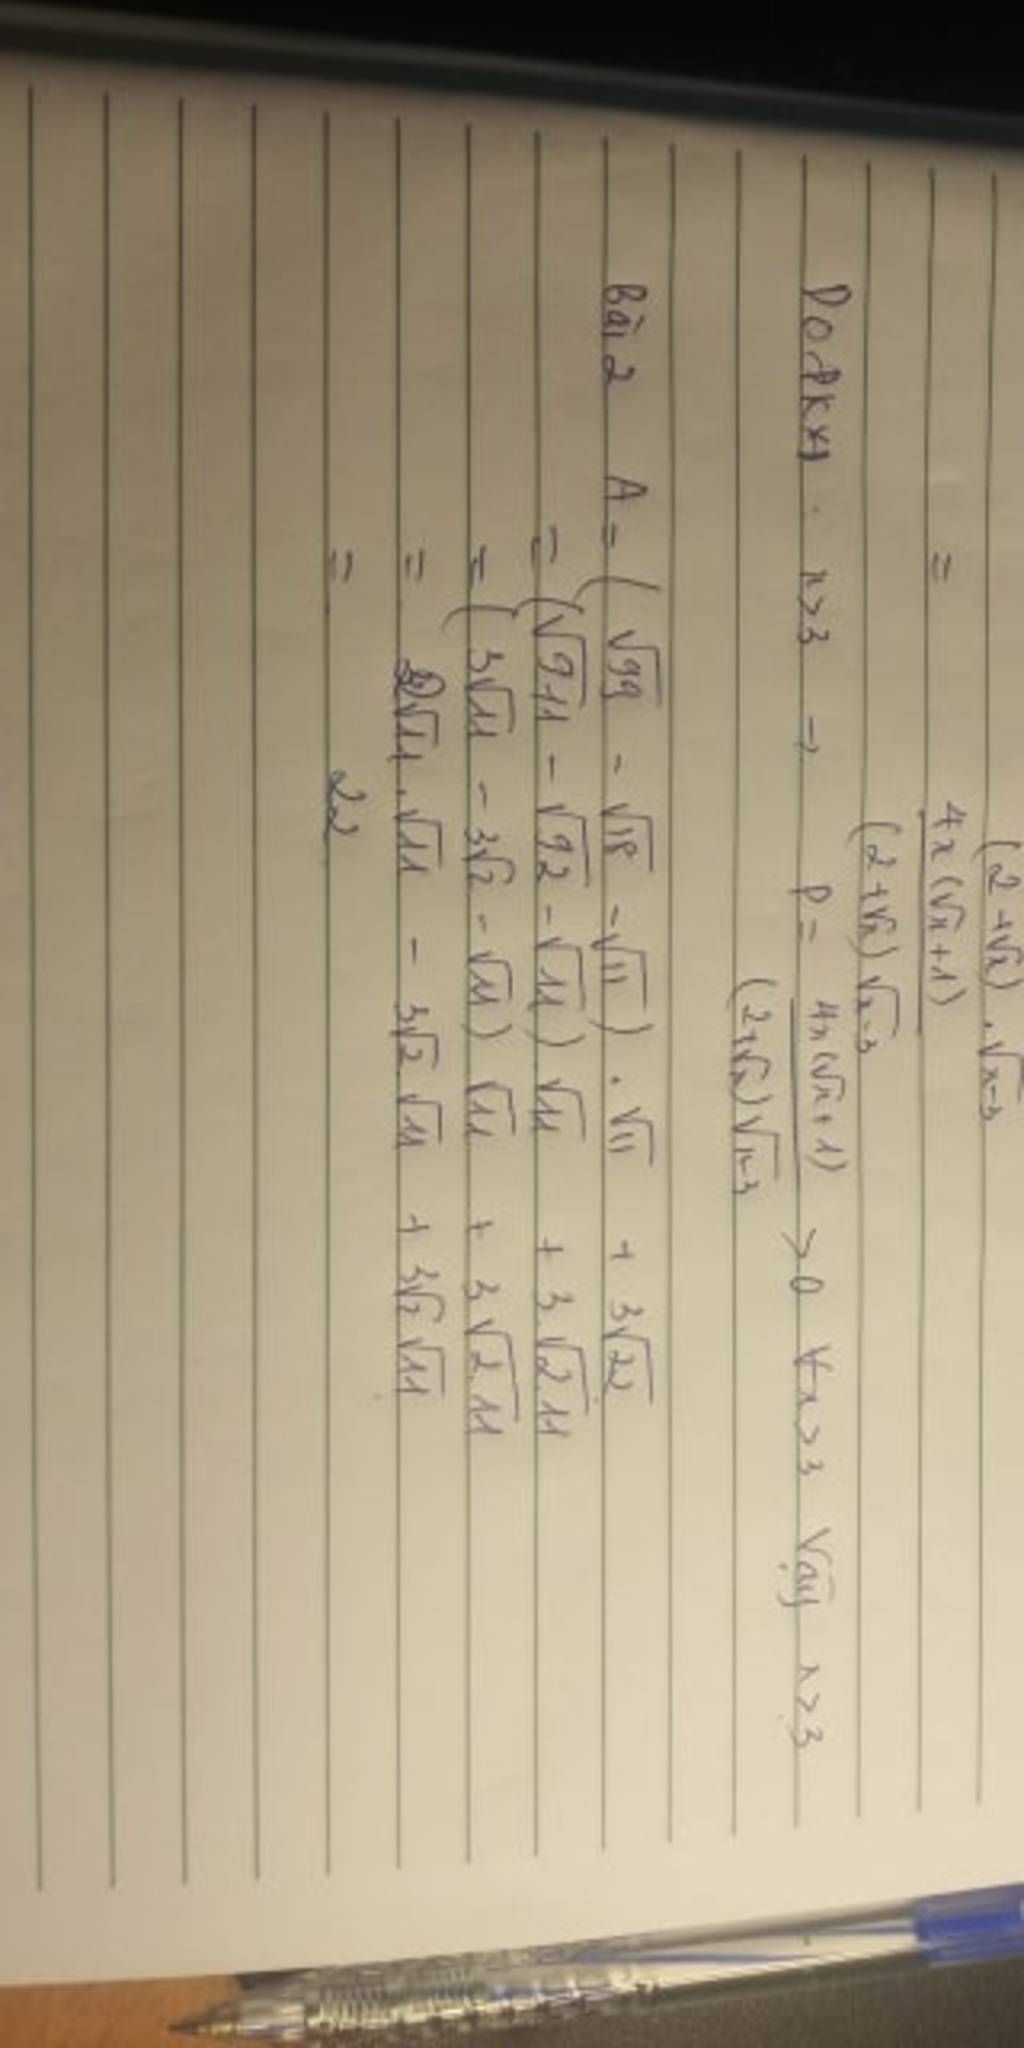 (2+√x).√x-3
= 4x(√x+1)
(2+√x)√x-3
Do ĐKXĐ: x>3 → P = 4x(√x+1) >0 ∀x>3 Vậy x>3
(2+√x)√x-3
Bài 2 A = (√99 - √18 - √11).√11 + 3√22
= (√9.11 - √9.2 - √11)√11 + 3.√2.11
= (3√11 - 3√2 - √11)√11 + 3√2.11
= 2√11.√11 - 3√2√11 + 3√2√11
= 22